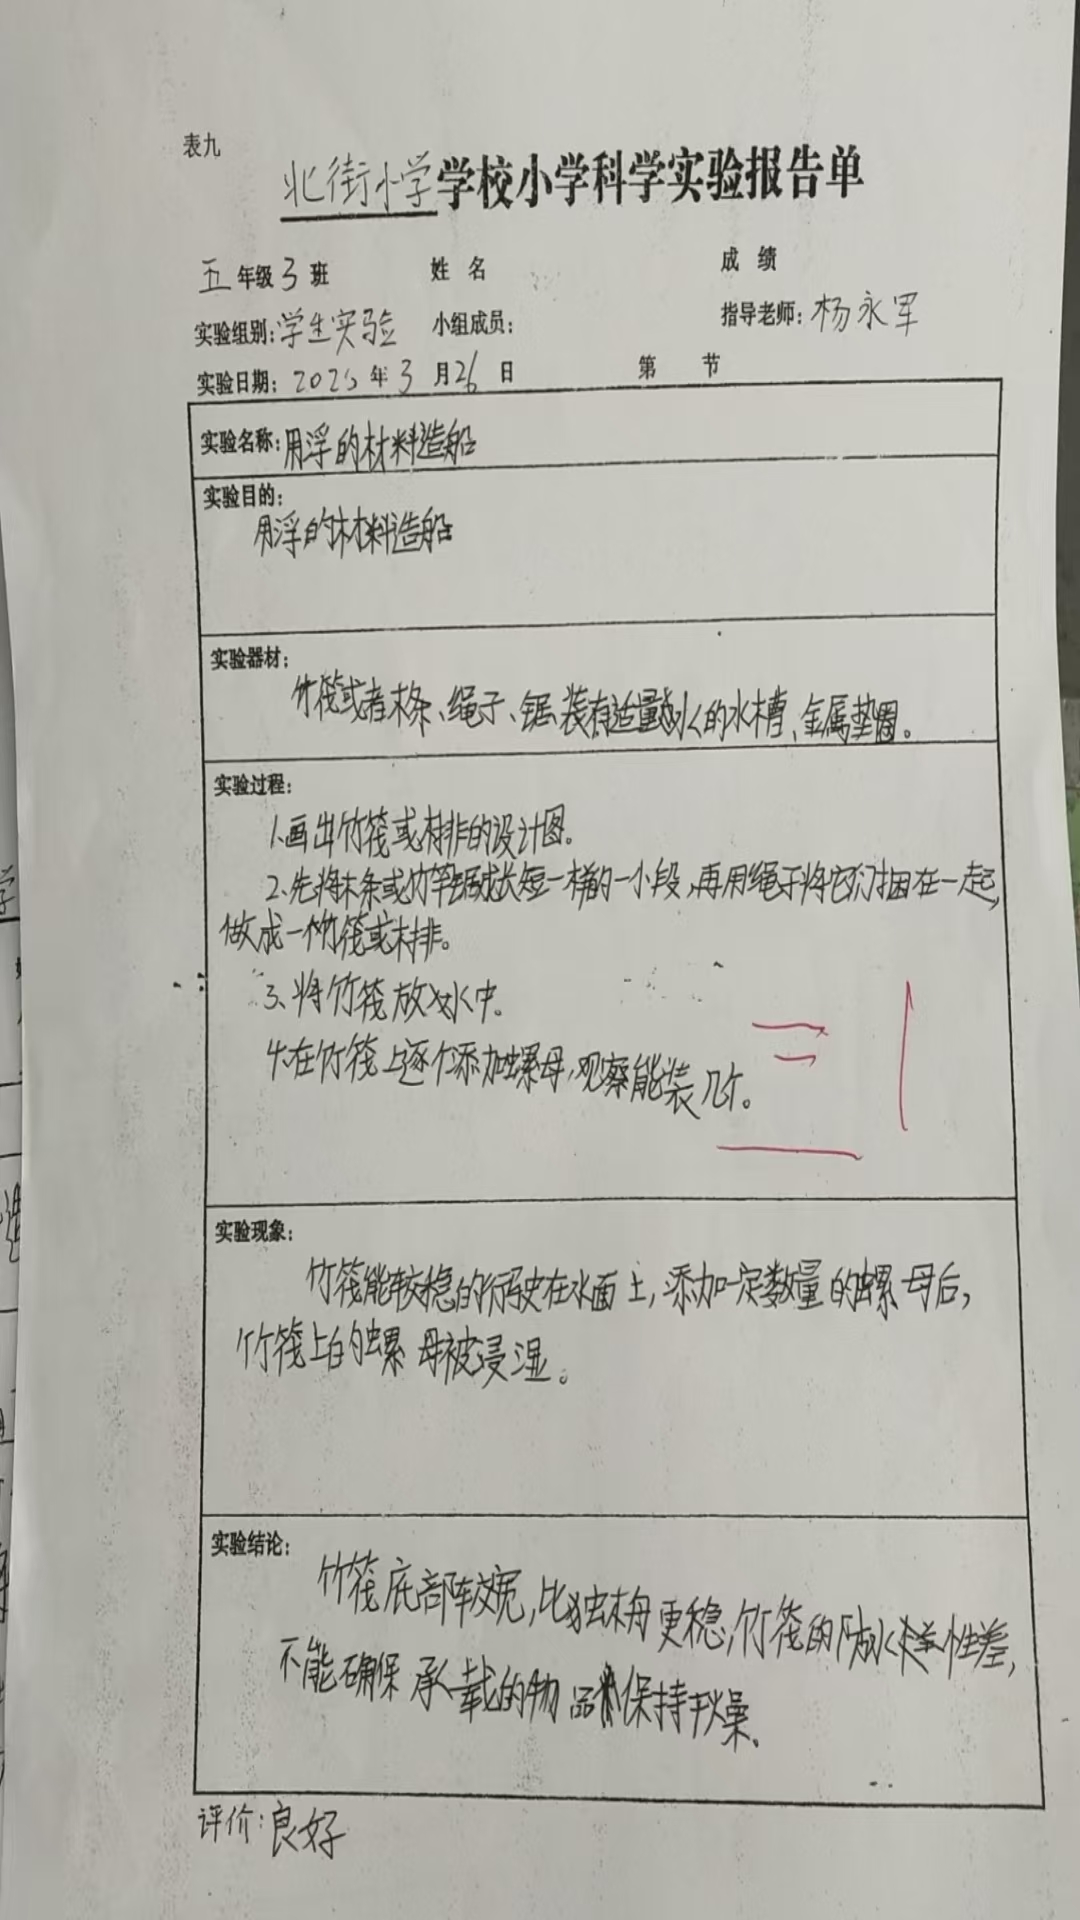 表九
北街小学学校小学科学实验报告单
五年级3班 姓名 成绩
实验组别:学生实验 小组成员: 指导老师:杨永军
实验日期:2025年3月26日 第 节
实验名称:用浮的材料造船
实验目的:
用浮的材料造船
实验器材:
竹筏或者木条、绳子、锯、装有适量水的水槽、金属垫圈。
实验过程:
1.画出竹筏或木排的设计图。
2.先将木条或竹竿锯成长短一样的一小段,再用绳子将它们捆在一起,
做成一个竹筏或木排。
3、将竹筏放入水中。
4.在竹筏上逐个添加螺母,观察能装几个。
实验现象:
竹筏能较稳的行驶在水面上,添加一定数量的螺母后,
竹筏上的螺母被浸湿。
实验结论:
竹筏底部较宽,比独木舟更稳,竹筏的防水性差,
不能确保承载的物品保持干燥、
评价:良好